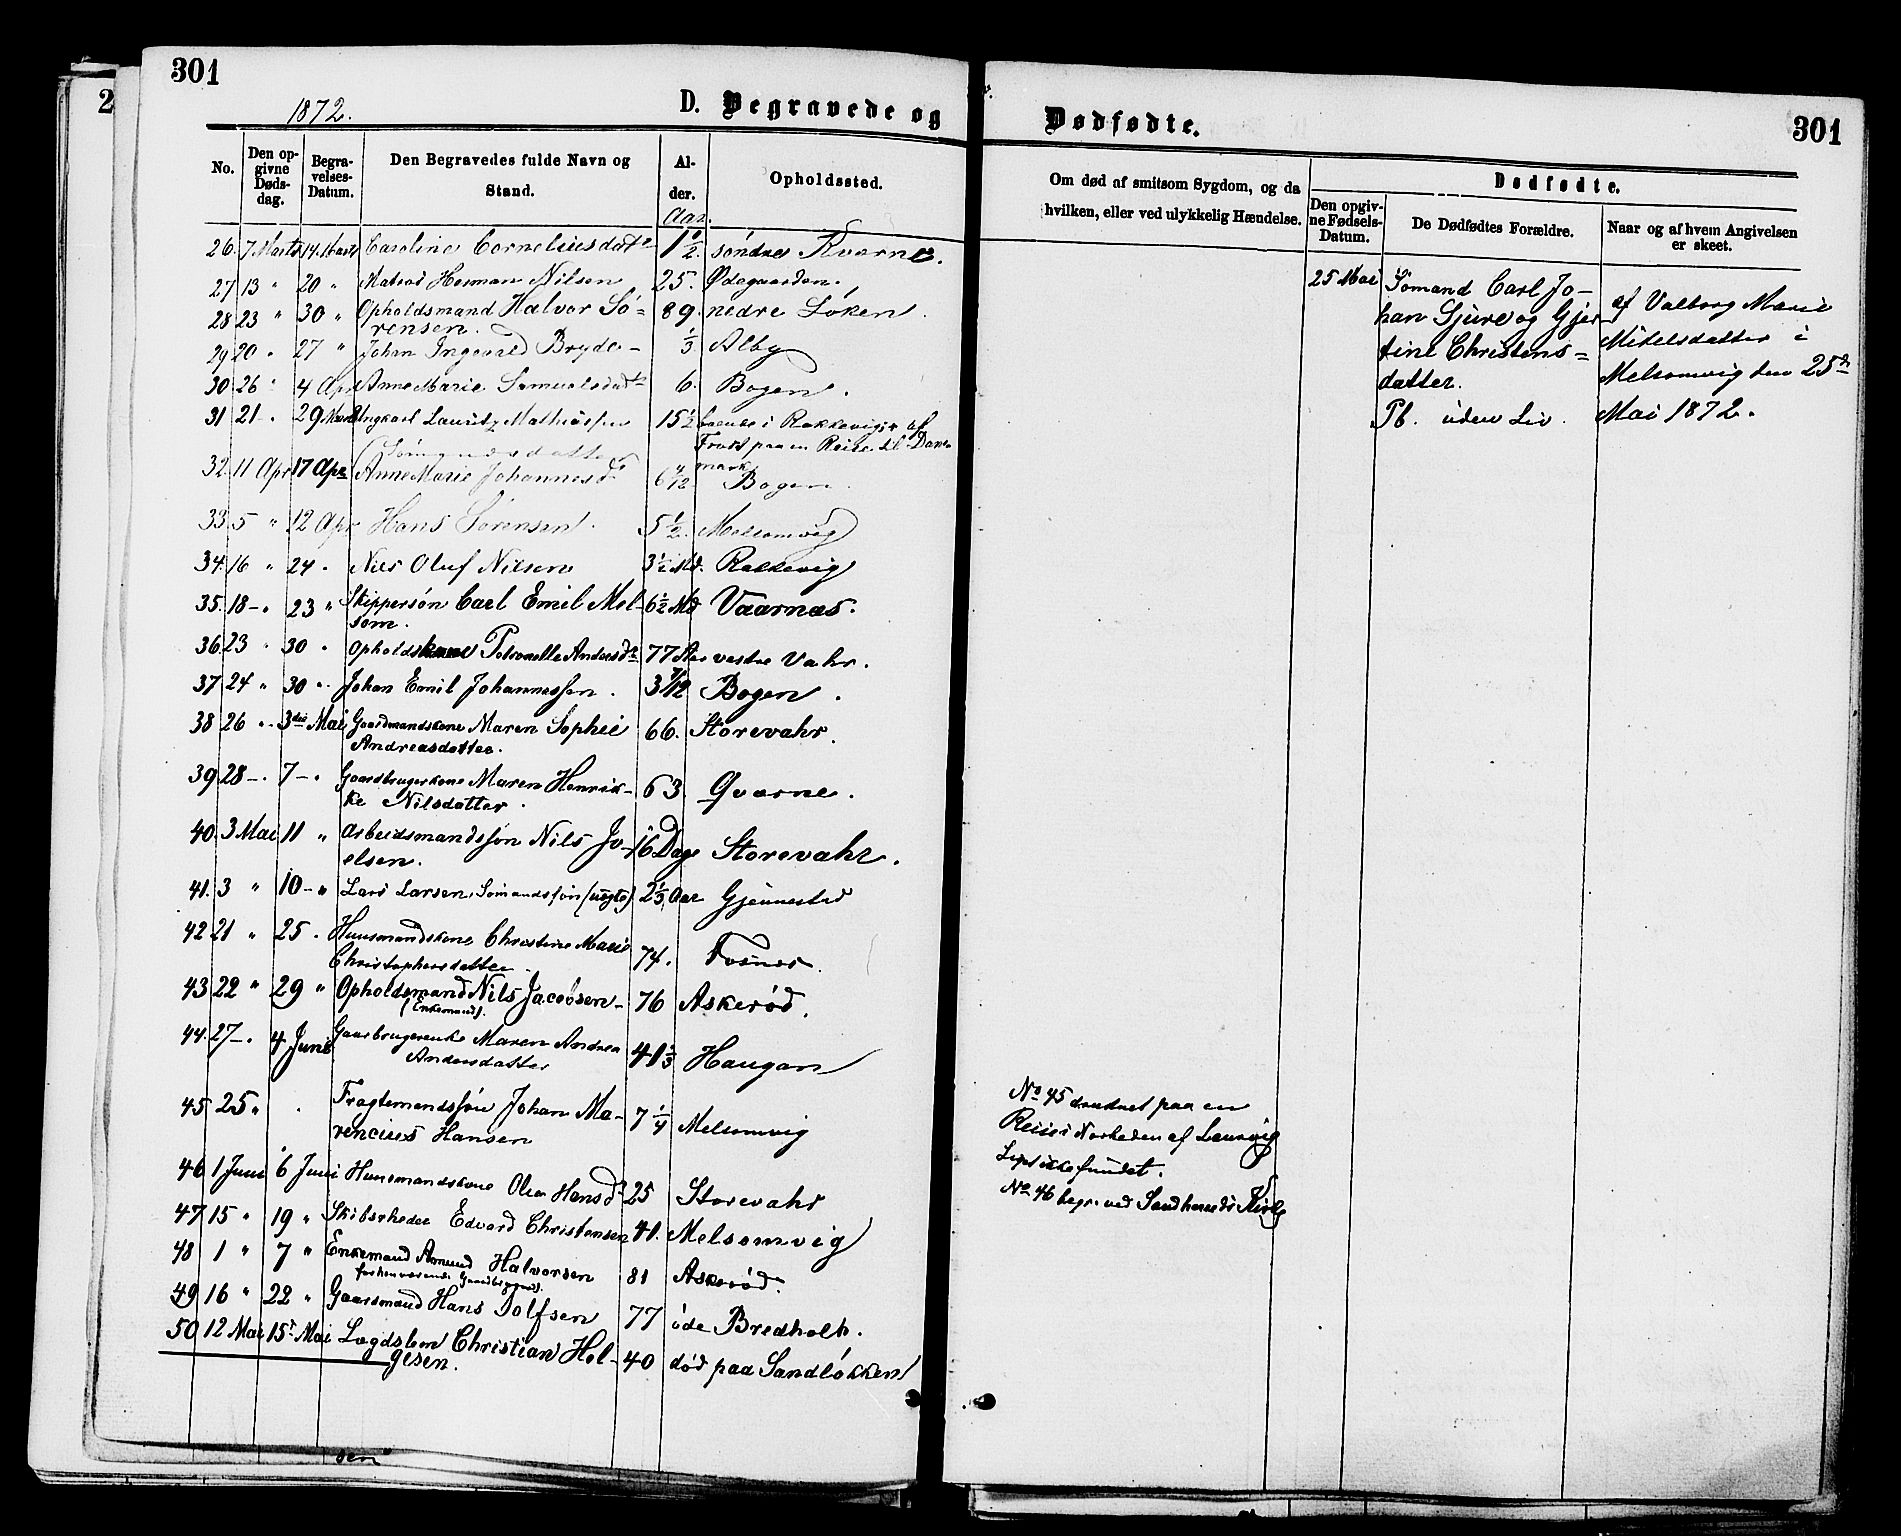 301
1872.
D. Begravede og
No.
Den opgivne Dødsdag.
Begravelses-Datum.
Den Begravedes fulde Navn og Stand.
Alder.
Aar.
Opholdssted.
26. 7 Marts 14 Marts Caroline Corneliusdatr 1 1/2. søndre Kvarne.
27 13 " 20 " Matros Herman Nilsen 25. Ødegaarden.
28 23 " 30 " Opholdsmand Halvor Sö= 89. nedre Löken.
rensen.
29 20 " 27 " Johan Ingvald Bryde 1/3 Alby
30. 26 " 4 Apr Anne Marie Samuelsdatr 6. Bogen.
31 21 . 29 Marts Ungkarl Lauritz Mathiassen 15 1/2 boende i Rakkevig af
Frost paa en Reise til Dan-
mark
32. 11 Apr 17 Apr Anne Marie Johannesdr 6 4/12 Bogen.
33. 5 " 12 Apr Hans Sörensen. 5 1/2. Melsomvig
34. 16 " 24 . Nils Oluf Nilsen 3 1/2 Md. Rakkevig
35. 18 - . 23 " Skippersön Carl Emil Mel- 6 1/2 Md Vaarnæs.
som.
36 23 " 30 . Opholdskone Petronelle Andersdr 77 Aar vestre Vahr.
37 24 " 30 . Johan Emil Johannessen. 3 7/12 Bogen.
38 26 . 3die Mai Gaardmandskone Maren Sophie 66. Storevahr.
Andreasdatter.
39 28 - . 7 - . Gaardbrugerkone Maren Henrik- 63 Qvarne.
ke Nilsdatter.
40. 3 Mai 11 " Arbeidsmandssön Nils Jo- 16 Dage Storevahr.
elsen.
41. 3 " 10 - " Lars Larsen, Sömandssön (uægte) 2 1/3 Aar Gjennestad
42 21 " 25 . Huusmandskone Christine Marie 74. Fosnæs.
Christophersdatter
43 22 " 29 " Opholdsmand Nils Jacobsen 76 Askeröd.
(Enkemand).
44. 27 - . 4 Juni Gaardbrugerenke Maren Andrea 41 1/3 Haugan
Andersdatter
45 25 " . Fragtemandssön Johan Ma- 7 1/4 Melsomvig
rencius Hansen
46 1 Juni 6 Juni Huusmandskone Olea Hansdr 25 Storevahr
47 15 " 19 " Skibsrheder Edvard Christensen 41. Melsomvig
48 1 " 7 " Enkemand Amund Halvorsen 81 Askeröd.
forhenværende Gaardbruger.
49 16 " 22 " Gaardmand Hans Dolfsen 77 öde Bredholt.
50 12 Mai 15 Mai Lægdslem Christian Hel- 40 död paa Sandlökken
gesen.
Dødfødte.
301
Om død af smitsom Sygdom, og da
hvilken, eller ved ulykkelig Hændelse.
Dødfødte.
Den opgivne Fødsels-Datum.
De Dødfødtes Forældre.
Naar og af hvem Angivelsen er skeet.
25 Mai
Sömand Carl Jo-
han Gjure og Gjer-
tine Christens=
datter.
Pb. uden Liv.
af Valborg Marie
Mikelsdatter i
Melsomvig den 25de
Mai 1872.
No 45 druknet paa en
Reise i Nærheden af Laurvig
Liget ikke fundet.
No 46 begr. ved Sandherreds Kirke
sen